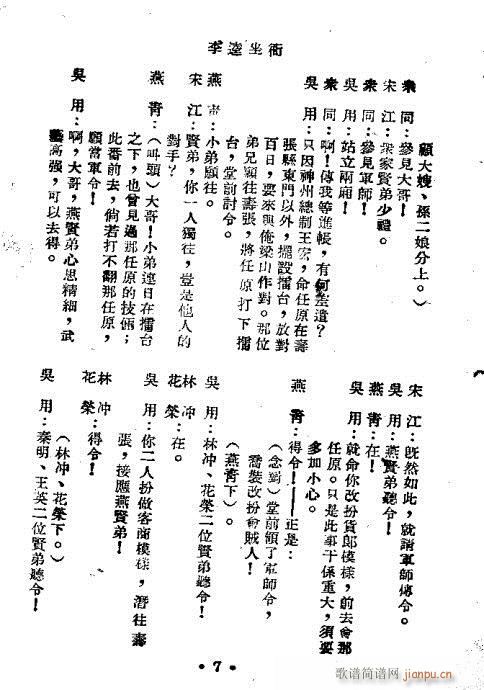 李逵坐衙
顧大嫂、孫二娘分上。）
衆　同：參見大哥！
宋　江：衆家賢弟少禮。
衆　同：參見軍師！
吳　用：站立兩厢！
衆　同：啊！傳我等進帳，有何差遣？
吳　用：只因神州總制王宏，命任原在壽
張縣東門以外，擺設擂台，放對
百日，要來與俺梁山作對。那位
弟兄願往壽張，將任原打下擂
台，堂前討令。
燕　青：小弟願往。
宋　江：賢弟，你一人獨往，豈是他人的
對手？
燕　青：（叫頭）大哥！小弟逐日在擂台
之下，也曾見過那任原的技倆；
此番前去，倘若打不翻那任原，
願當軍令！
吳　用：啊，大哥，燕賢弟心思精細，武
藝高强，可以去得。
宋　江：既然如此，就請軍師傳令。
吳　用：燕賢弟聽令！
燕　青：在！
吳　用：就命你改扮貨郎模樣，前去會那
任原。只是此事干係重大，須要
多加小心。
燕　青：得令！——正是：
（念對）堂前領了軍師令，
喬裝改扮會賊人！
（燕青下）。
吳　用：林冲、花榮二位賢弟聽令！
林　冲
花　榮：在。
吳　用：你二人扮做客商模樣，潛往壽
張，接應燕賢弟！
林　冲
花　榮：得令！
（林冲、花榮下。）
吳　用：秦明、王英二位賢弟聽令！
• 7 •
歌谱简谱网
jianpu.cn